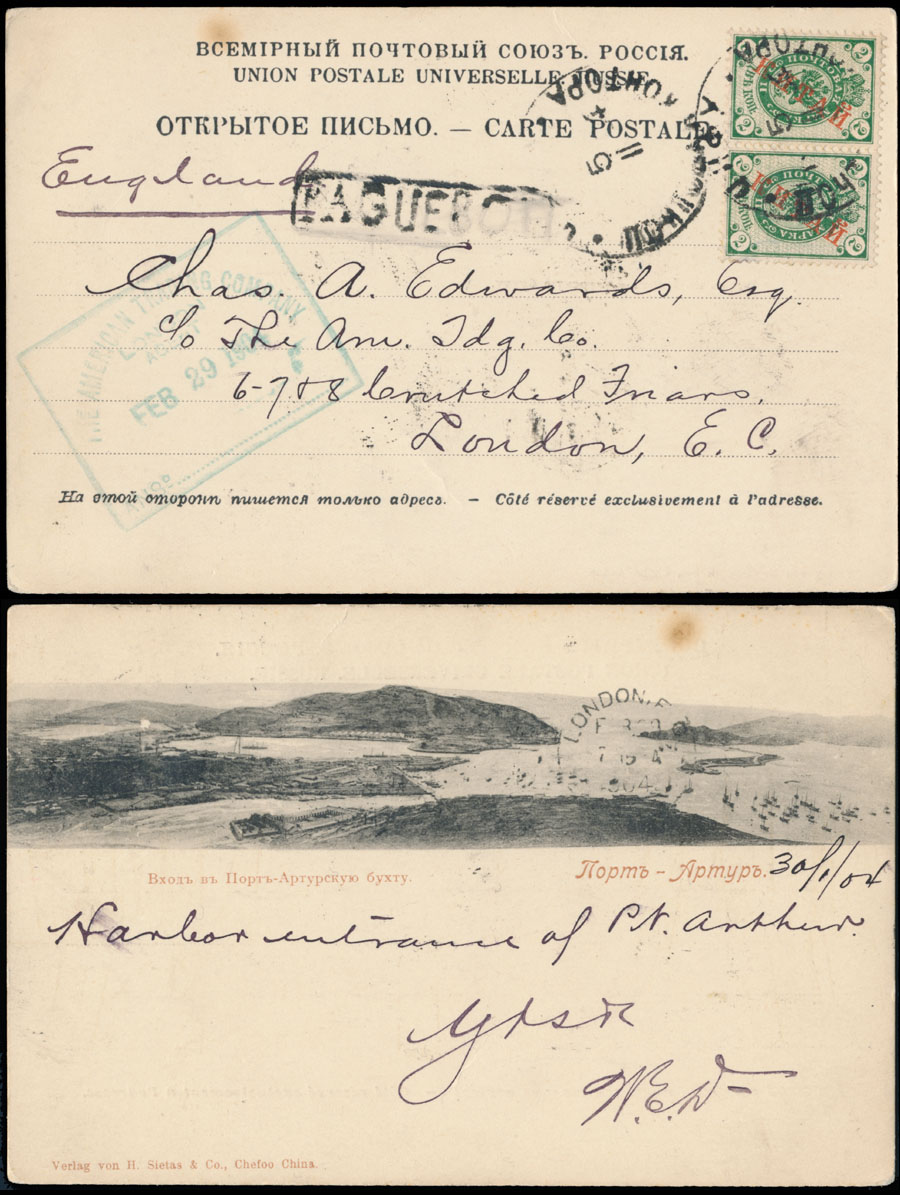 ВСЕМІРНЫЙ ПОЧТОВЫЙ СОЮЗЪ. РОССІЯ.
UNION POSTALE UNIVERSELLE. RUSSIE.
ОТКРЫТОЕ ПИСЬМО. — CARTE POSTALE
England
PAQUEBOT
КОНТОРА
КИТАЙ
КИТАЙ
Chas. A. Edwards, Esq.
c/o The Am. Tdg. Co.
6-7 & 8 Crutched Friars,
London, E. C.
THE AMERICAN TRADING COMPANY
LONDON
AGENCY
FEB 29 1904
ANSD
На этой сторонѣ пишется только адресъ. — Côté réservé exclusivement à l'adresse.
LONDON.
Входъ въ Портъ-Артурскую бухту.
Портъ - Артуръ.
30/1/04
Harbor entrance of Pt. Arthur.
W.E.D-
Verlag von H. Sietas & Co., Chefoo China.